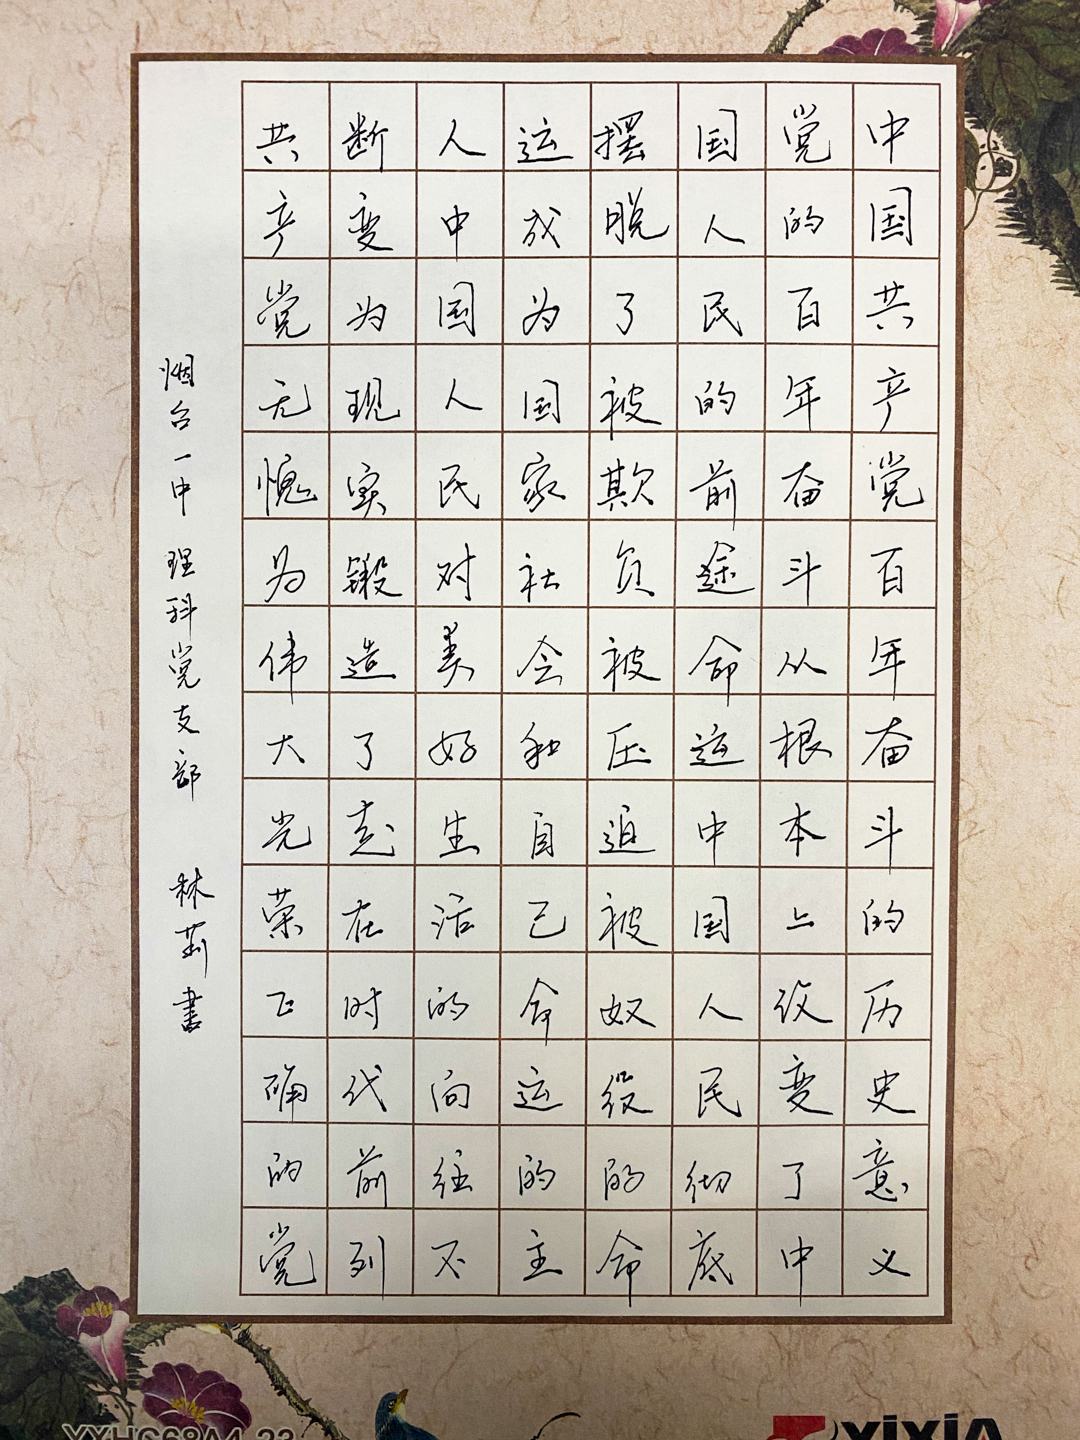 中国共产党百年奋斗的历史意义
党的百年奋斗从根本上改变了中
国人民的前途命运中国人民彻底
摆脱了被欺负被压迫被奴役的命
运成为国家社会和自己命运的主
人中国人民对美好生活的向往不
断变为现实锻造了走在时代前列
共产党无愧为伟大光荣正确的党
烟台一中 理科党支部 林莉書
YXHC68A4-23
YIXIA